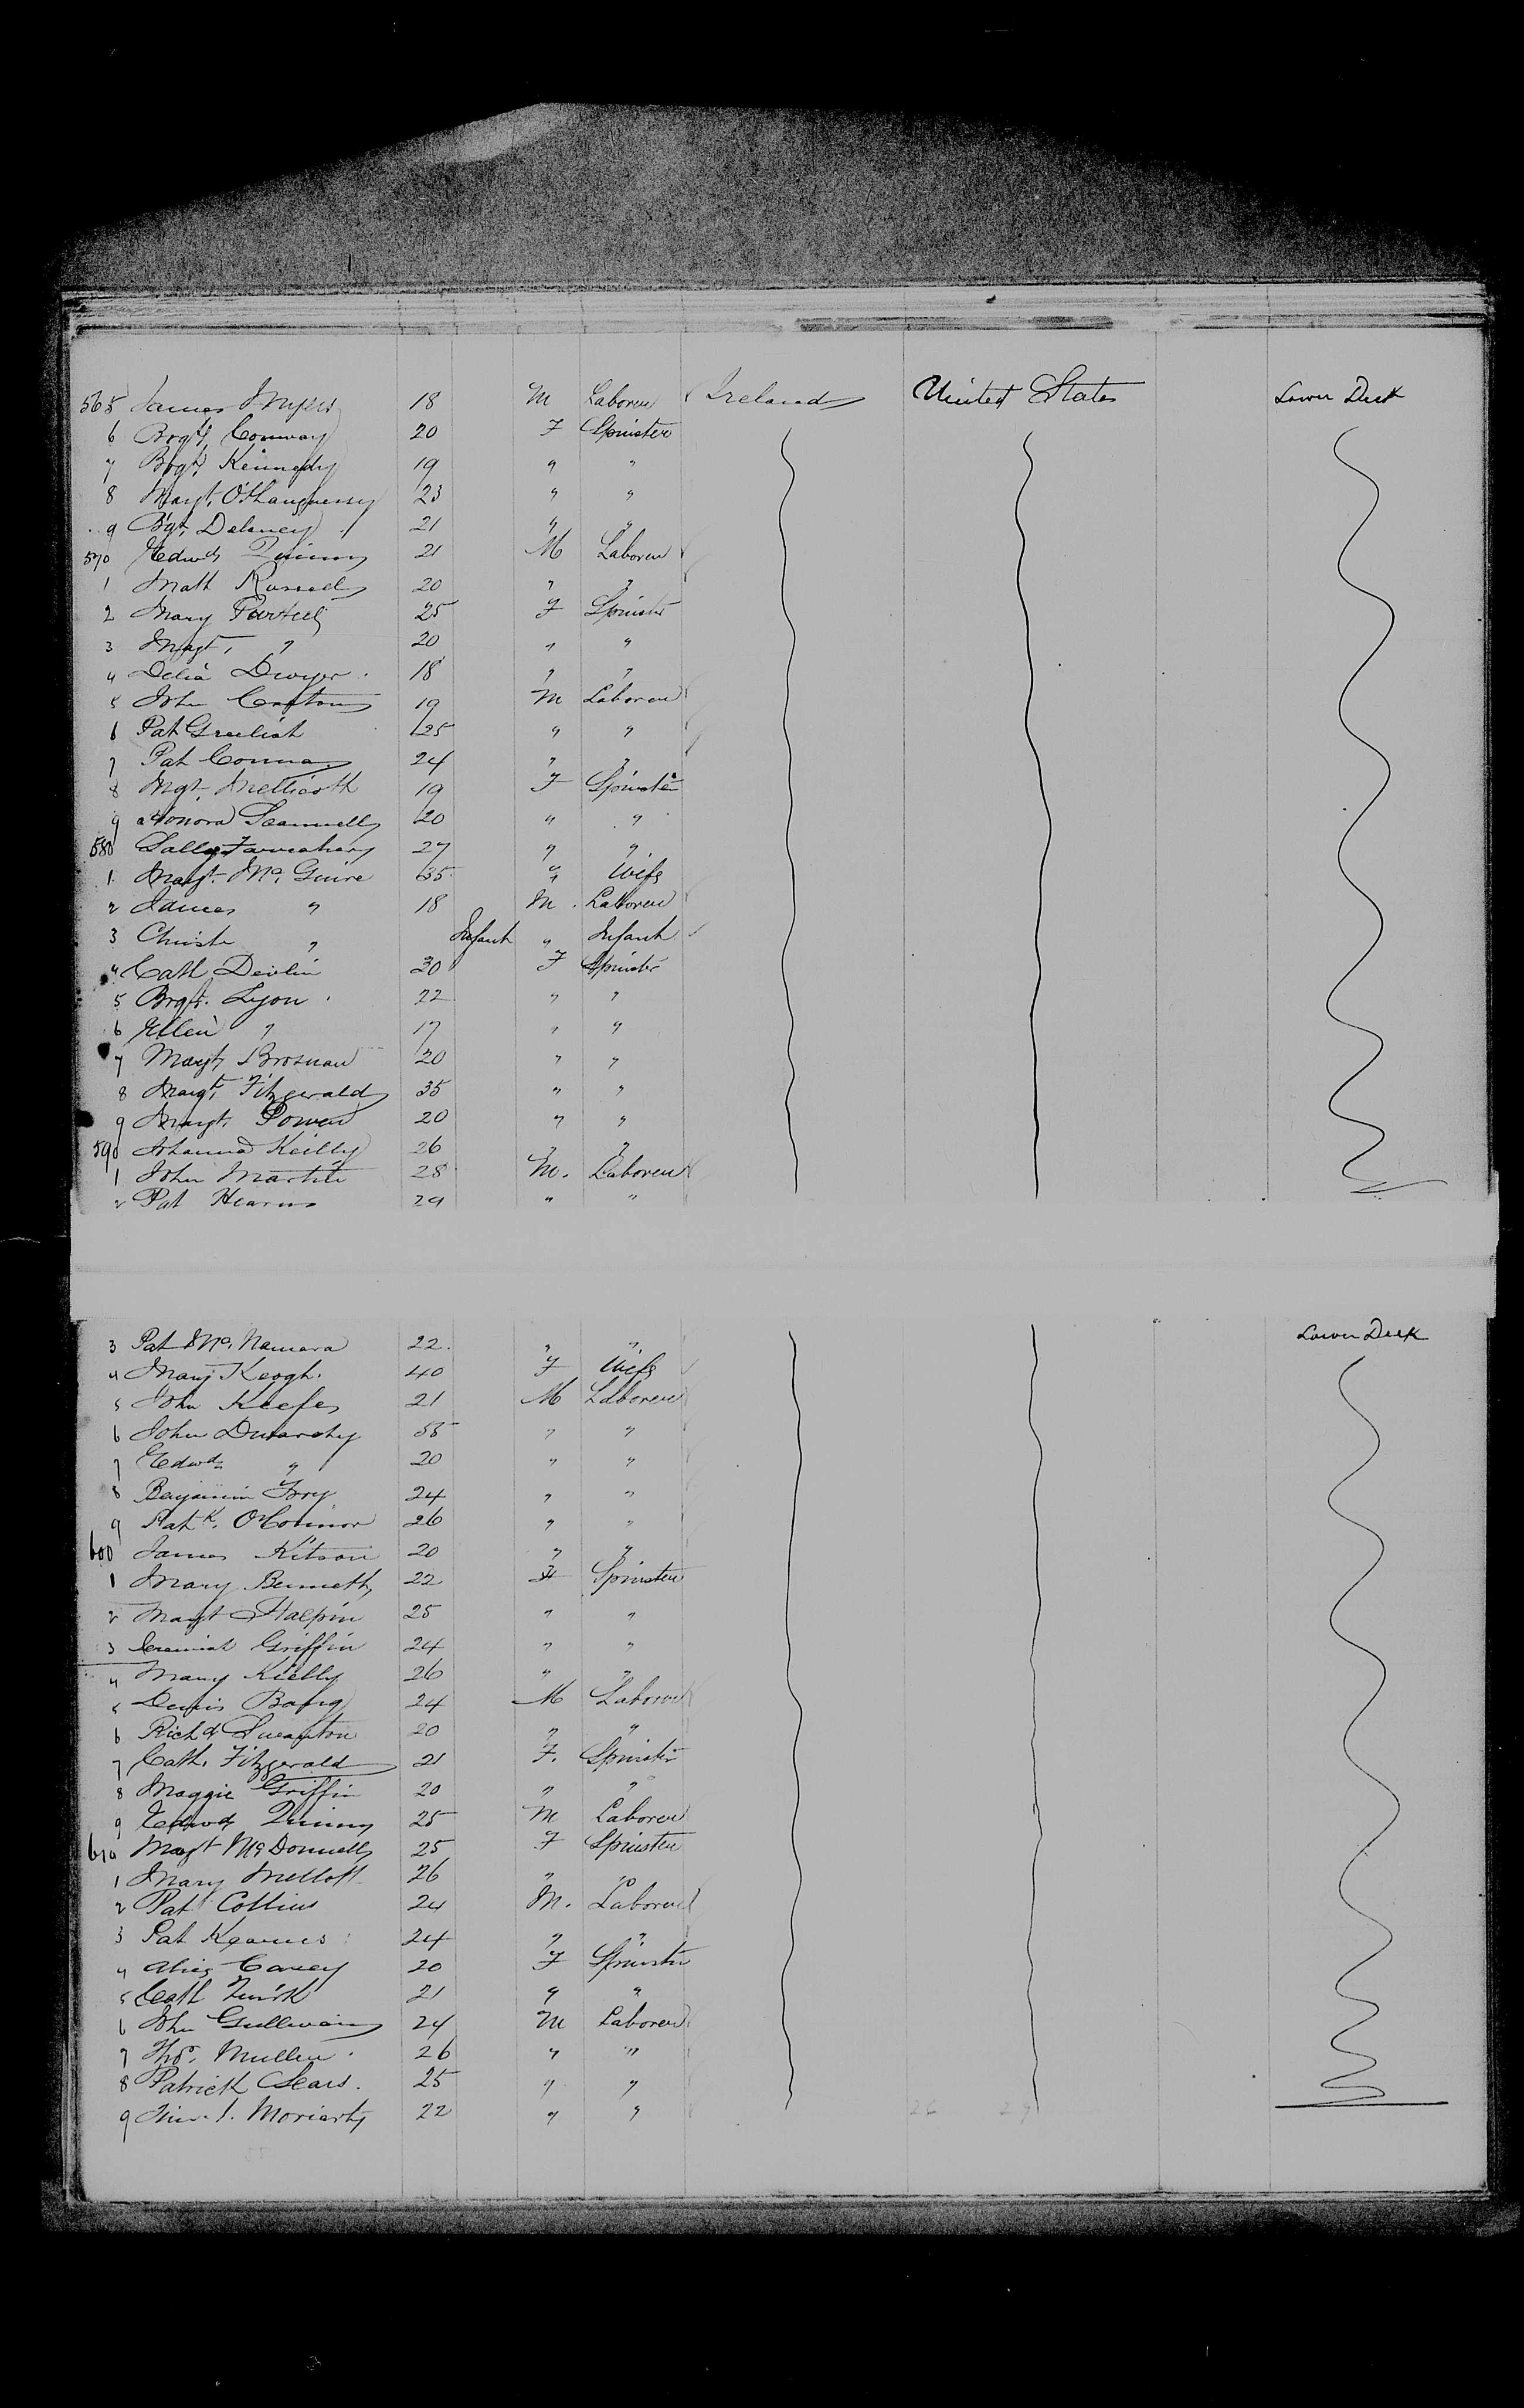 565 James Myers 18 M Laborer Ireland United States Lower Deck
6 Brgt. Conway 20 F Spinster
7 Brgt. Kennedy 19 " "
8 Margt. O'Shaughnessy 23 " "
9 Bgt. Delaney 21 " "
570 Edwd Quinny 21 M Laborer
1 Matt Russell 20 " "
2 Mary Purtell 25 F Spinster
3 Magt. " 20 " "
4 Delia Dwyer 18 " "
5 John 19 M Laborer
6 Pat Greelish 25 " "
7 Pat 24 " "
8 Mgt. 19 F Spinster
9 Honora Scannell 20 " "
580 Sally 27 " "
1 Margt. Mc Guire 35 " Wife
2 James " 18 M. Laborer
3 Christr " Infant " Infant
4 Cath Devlin 30 F Spinster
5 Brgt. Lyon 22 " "
6 Ellen " 17 " "
7 Margt Brosnan 20 " "
8 Margt. Fitzgerald 35 " "
9 Margt. Power 20 " "
590 Johanna Keilly 26 " "
1 John Martin 28 M. Laborer
2 Pat Hearns 29 " "
3 Pat Mc. Namara 22 " " Lower Deck
4 Mary Keogh. 40 F Wife
5 John Keefe 21 M Laborer
6 John 55 " "
7 Edwd. " 20 " "
8 Benjamin 24 " "
9 Patk. O'Connor 26 " "
600 James Kitson 20 " "
1 Mary Bennett 22 F Spinster
2 Margt Halpin 25 " "
3 Jeremiah Griffin 24 " "
4 Mary Kielly 26 " "
5 Denis 24 M Laborer
6 Richd Swanton 20 " "
7 Cath. Fitzgerald 21 F. Spinster
8 Maggie Griffin 20 " "
9 Edwd Quinny 25 M Laborer
610 Magt McDonnell 25 F Spinster
1 Mary Mellott 26 " "
2 Pat Collins 24 M. Laborer
3 Pat Kearnes 24 " "
4 Alice Carey 20 F Spinster
5 Cath Quirk 21 " "
6 John Gullivan 24 M Laborer
7 Thos. Mullen 26 " "
8 Patrick Sears. 25 " "
9 J. Moriarty 22 " "